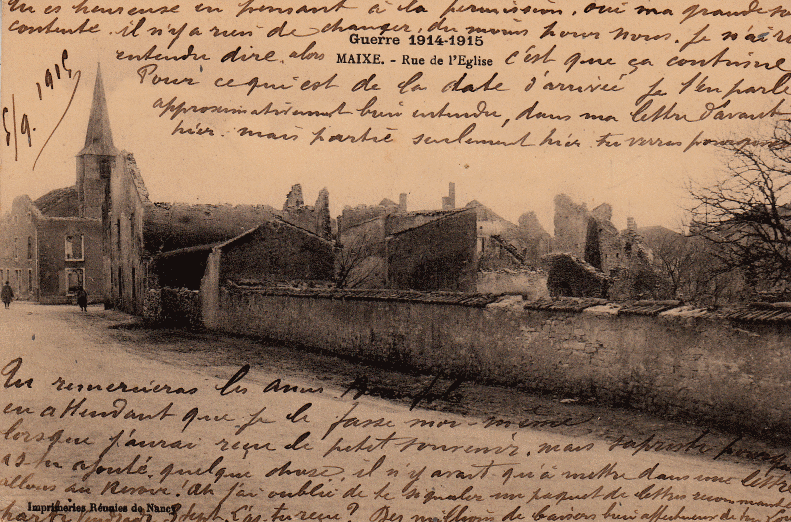 Tu es heureuse en pensant à la permission, oui ma grande
contente. il n'y a rien de changer, du moins pour nous. Je n'ai
Guerre 1914-1915
entendu dire, alors MAIXE. - Rue de l'Eglise c'est que ça continue
5/9. 1915
Pour ce qui est de la date d'arrivée je t'en parle
approximativement bien entendu, dans ma lettre d'avant
hier. mais partie seulement hier. tu verras pourquoi
Tu remercieras les amis
en attendant que je le fasse moi-même
lorsque j'aurai reçu le petit souvenir. mais
as tu ajouté quelque chose, il n'y avait qu'à mettre dans une lettre
allons au revoir! Ah j'ai oublié de te signaler un paquet de lettres recommandé
Imprimeries Réunies de Nancy
L'as-tu reçu? Des millions de baisers bien affectueux de ton